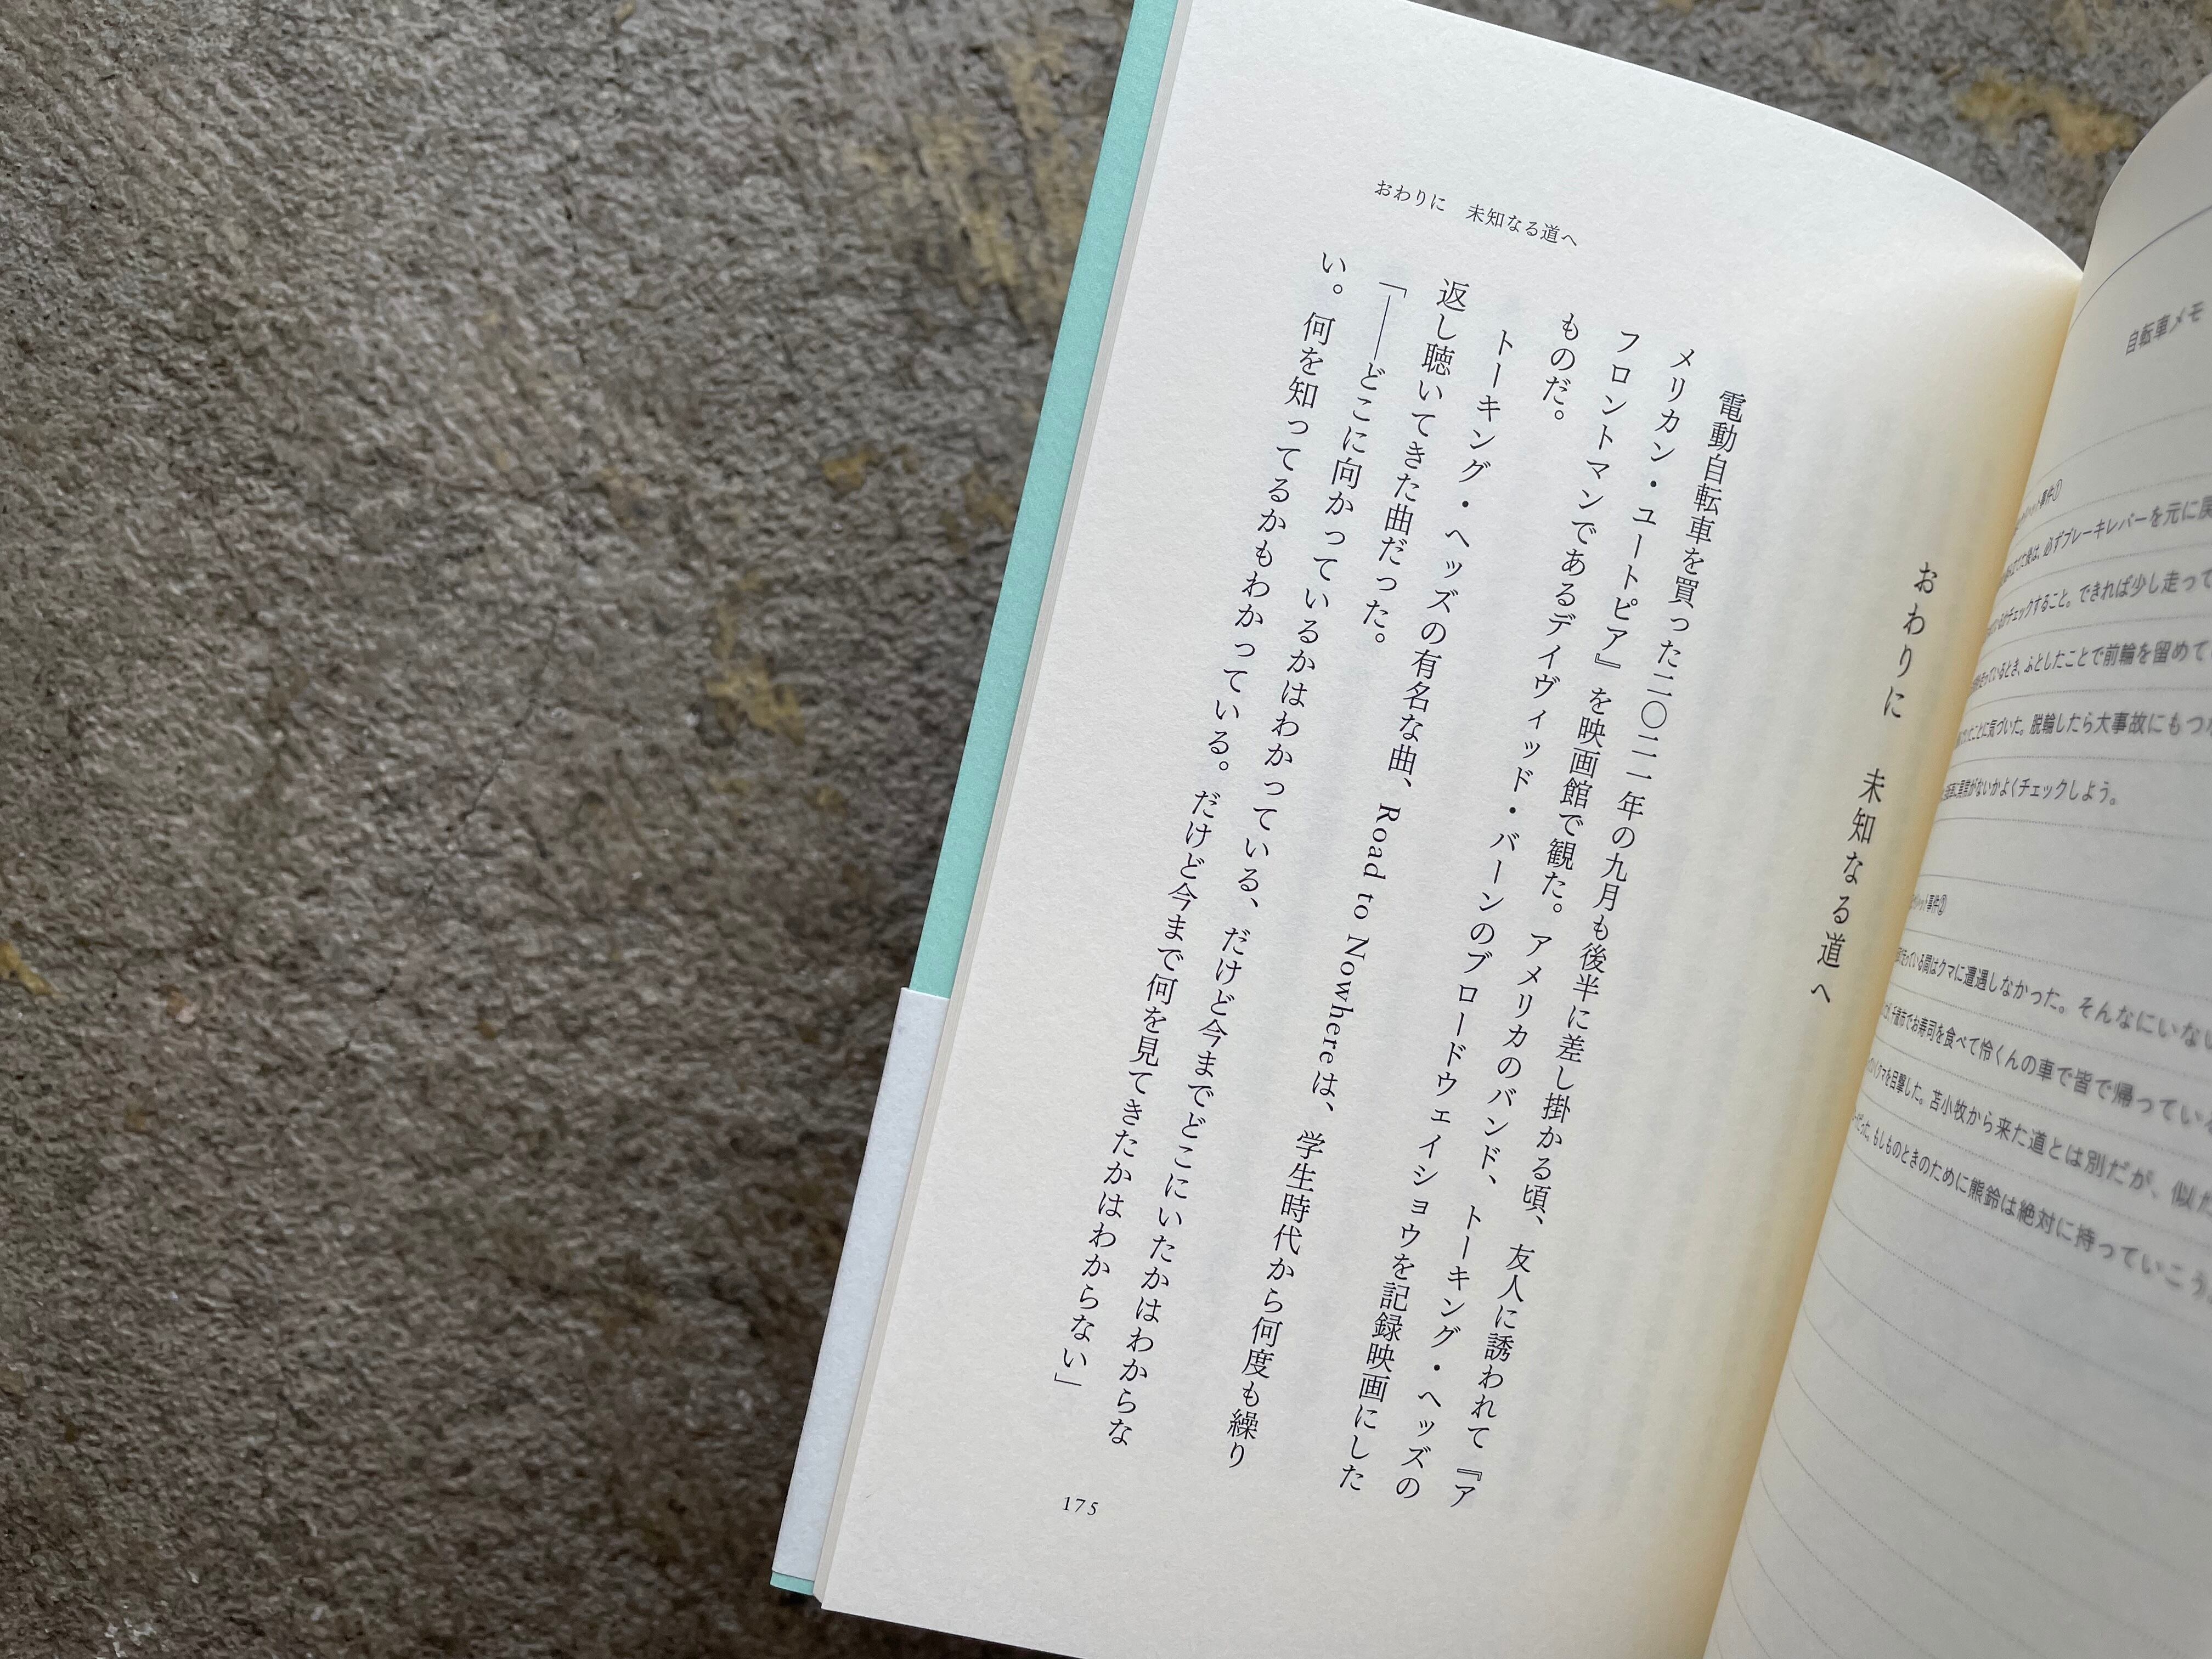 自転車メモ
必ずブレーキレバーを元に戻
チェックすること。できれば少し走って
いるとき、ふとしたことで前輪を留めて
ことに気づいた。脱輪したら大事故にもつ
がないかよくチェックしよう。
事件②
ている間はクマに遭遇しなかった。そんなにいない
千歳市でお寿司を食べて怜くんの車で皆で帰っている
クマを目撃した。苫小牧から来た道とは別だが、似た
だった。もしものときのために熊鈴は絶対に持っていこう
おわりに　未知なる道へ
おわりに　未知なる道へ
電動自転車を買った二〇二一年の九月も後半に差し掛かる頃、友人に誘われて『ア
メリカン・ユートピア』を映画館で観た。アメリカのバンド、トーキング・ヘッズの
フロントマンであるデイヴィッド・バーンのブロードウェイショウを記録映画にした
ものだ。
トーキング・ヘッズの有名な曲、Road to Nowhereは、学生時代から何度も繰り
返し聴いてきた曲だった。
「――どこに向かっているかはわかっている、だけど今までどこにいたかはわからな
い。何を知ってるかもわかっている。だけど今まで何を見てきたかはわからない」
175